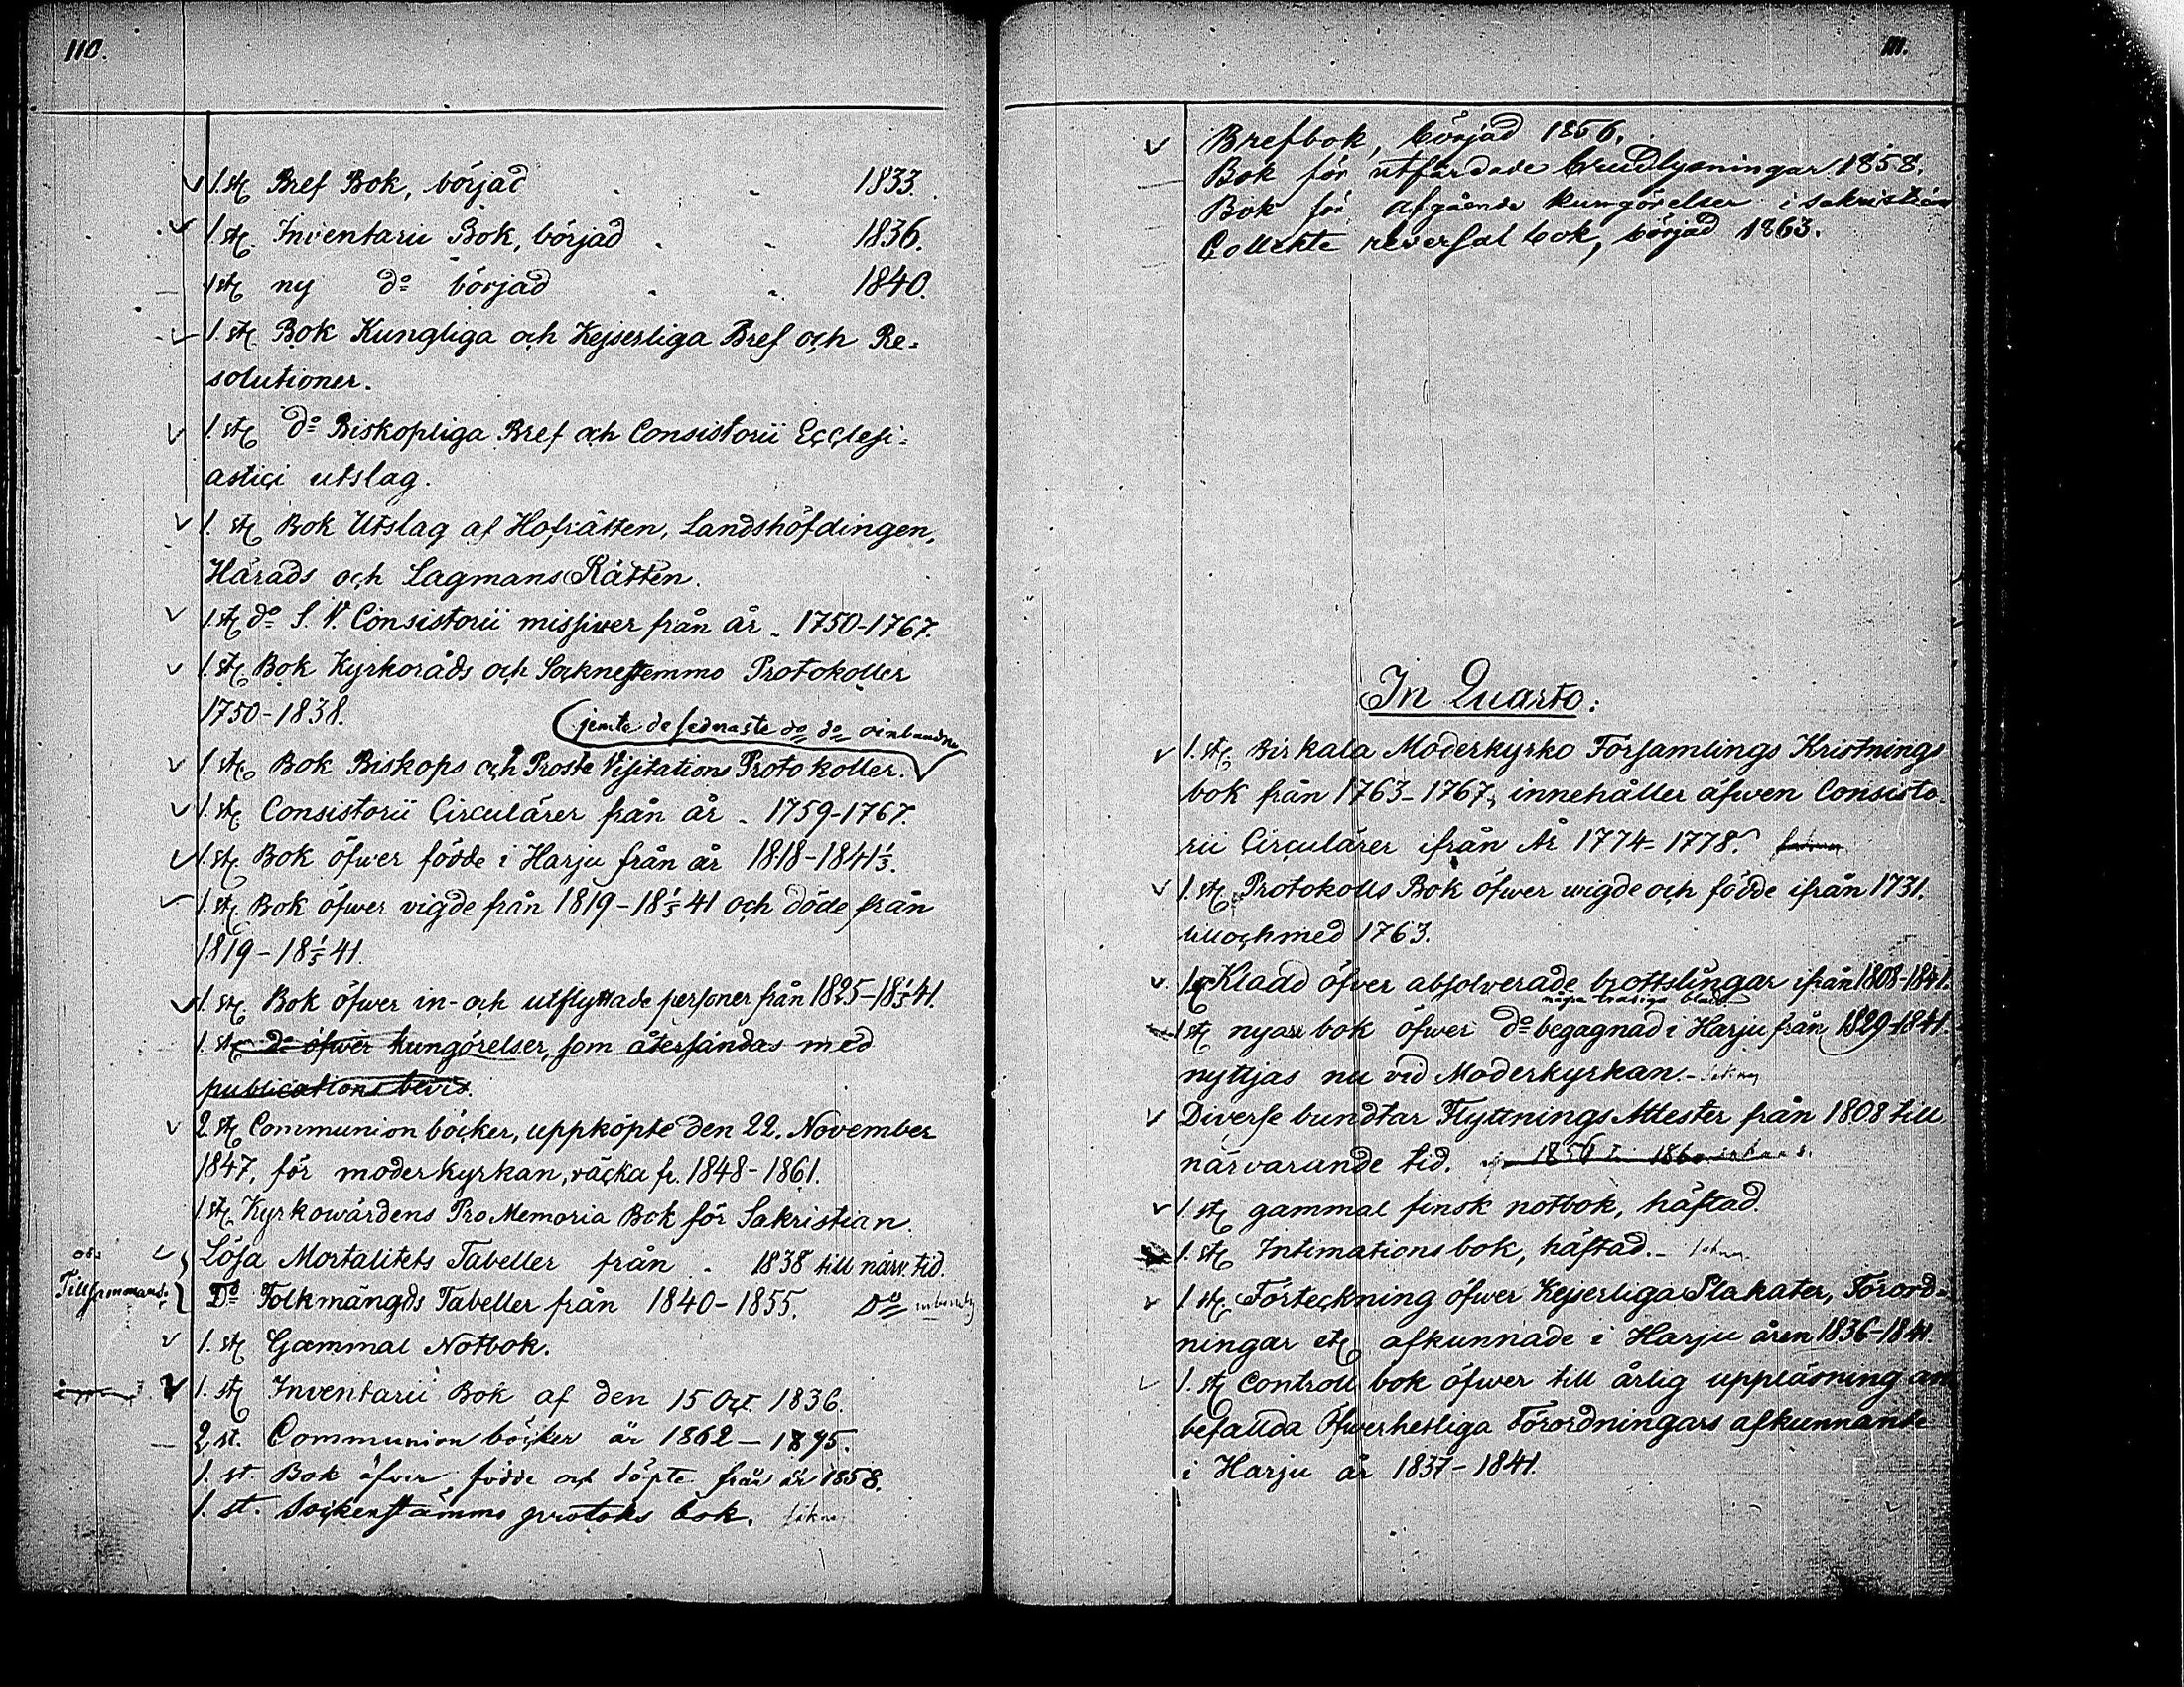 110.
1. st. Bref Bok, börjad 1833.
1 st. Inventarii Bok, börjad 1836.
1 st. ny do börjad 1840.
1. st. Bok Kungliga och Kejserliga Bref och Re-
solutioner.
1. st. do Biskopliga Bref och Consistorii Ecclesi-
astici utslag.
1. st. Bok Utslag af Hofrätten, Landshöfdingen,
Härads och Lagmans Rätten.
1. st. do S. V. Consistorii missiver från år 1750-1767.
1. st. Bok Kyrkoråds och Socknestemmo Protokoller
1750-1838.
(jemte de sednaste do do oinbundna
1. st. Bok Biskops och Proste Visitations Protokoller.
1. st. Consistorii Circulärer från år 1759-1767.
1. st. Bok öfwer födde i Harju från år 1818-1841 1/5.
1. st. Bok öfwer vigde från 1819-18 1/5 41 och döde från
1819-18 1/5 41.
1. st. Bok öfwer in- och utflyttade personer från 1825-18 1/5 41.
1. st. do öfwer kungörelser, som återsändas med
publications bevis.
2 st. Communion böcker, uppköpte den 22. November
1847, för moderkyrkan, räcka fr. 1848-1861.
1 st. Kyrkowärdens Pro Memoria Bok för Sakristian.
Lösa Mortalitets Tabeller från 1838 till närv. tid.
Do Folkmängds Tabeller från 1840-1855. Do
1. st. Gammal Notbok.
1. st. Inventarii Bok af den 15 Oct. 1836.
2 st. Communion böcker år 1862-1895.
1. st. Bok öfver födde och döpte från år 1858.
1. st. Sockenstämmo protoks bok.
111.
Brefbok, börjad 1856.
Bok för utfärdade lysningar 1858.
Bok för afgående kungörelser i sakristian
Collekte reversal bok, börjad 1863.
In Quarto:
1. st. Birkala Moderkyrko Församlings Kristnings
bok från 1763-1767, innehåller äfwen Consisto-
rii Circulärer ifrån År 1774-1778.
1. st. Protokolls Bok öfwer wigde och födde ifrån 1731.
till och med 1763.
1 st Kladd öfver absolverade brottslingar ifrån 1808-1841.
några trasiga blad
1 st nyare bok öfwer do begagnad i Harju från 1829-1841.
nyttjas nu vid Moderkyrkan.
Diverse bundtar Flyttnings Attester från 1808 till
närvarande tid.
1 st. gammal finsk notbok, häftad.
1. st. Intimations bok, häftad.
1 st. Förteckning öfwer Kejserliga Plakater, Förord-
ningar etc afkunnade i Harju åren 1836-1841.
1. st Controll bok öfwer till årlig uppläsning an
befallda Öfwerhetliga Förordningars afkunnande
i Harju år 1837-1841.